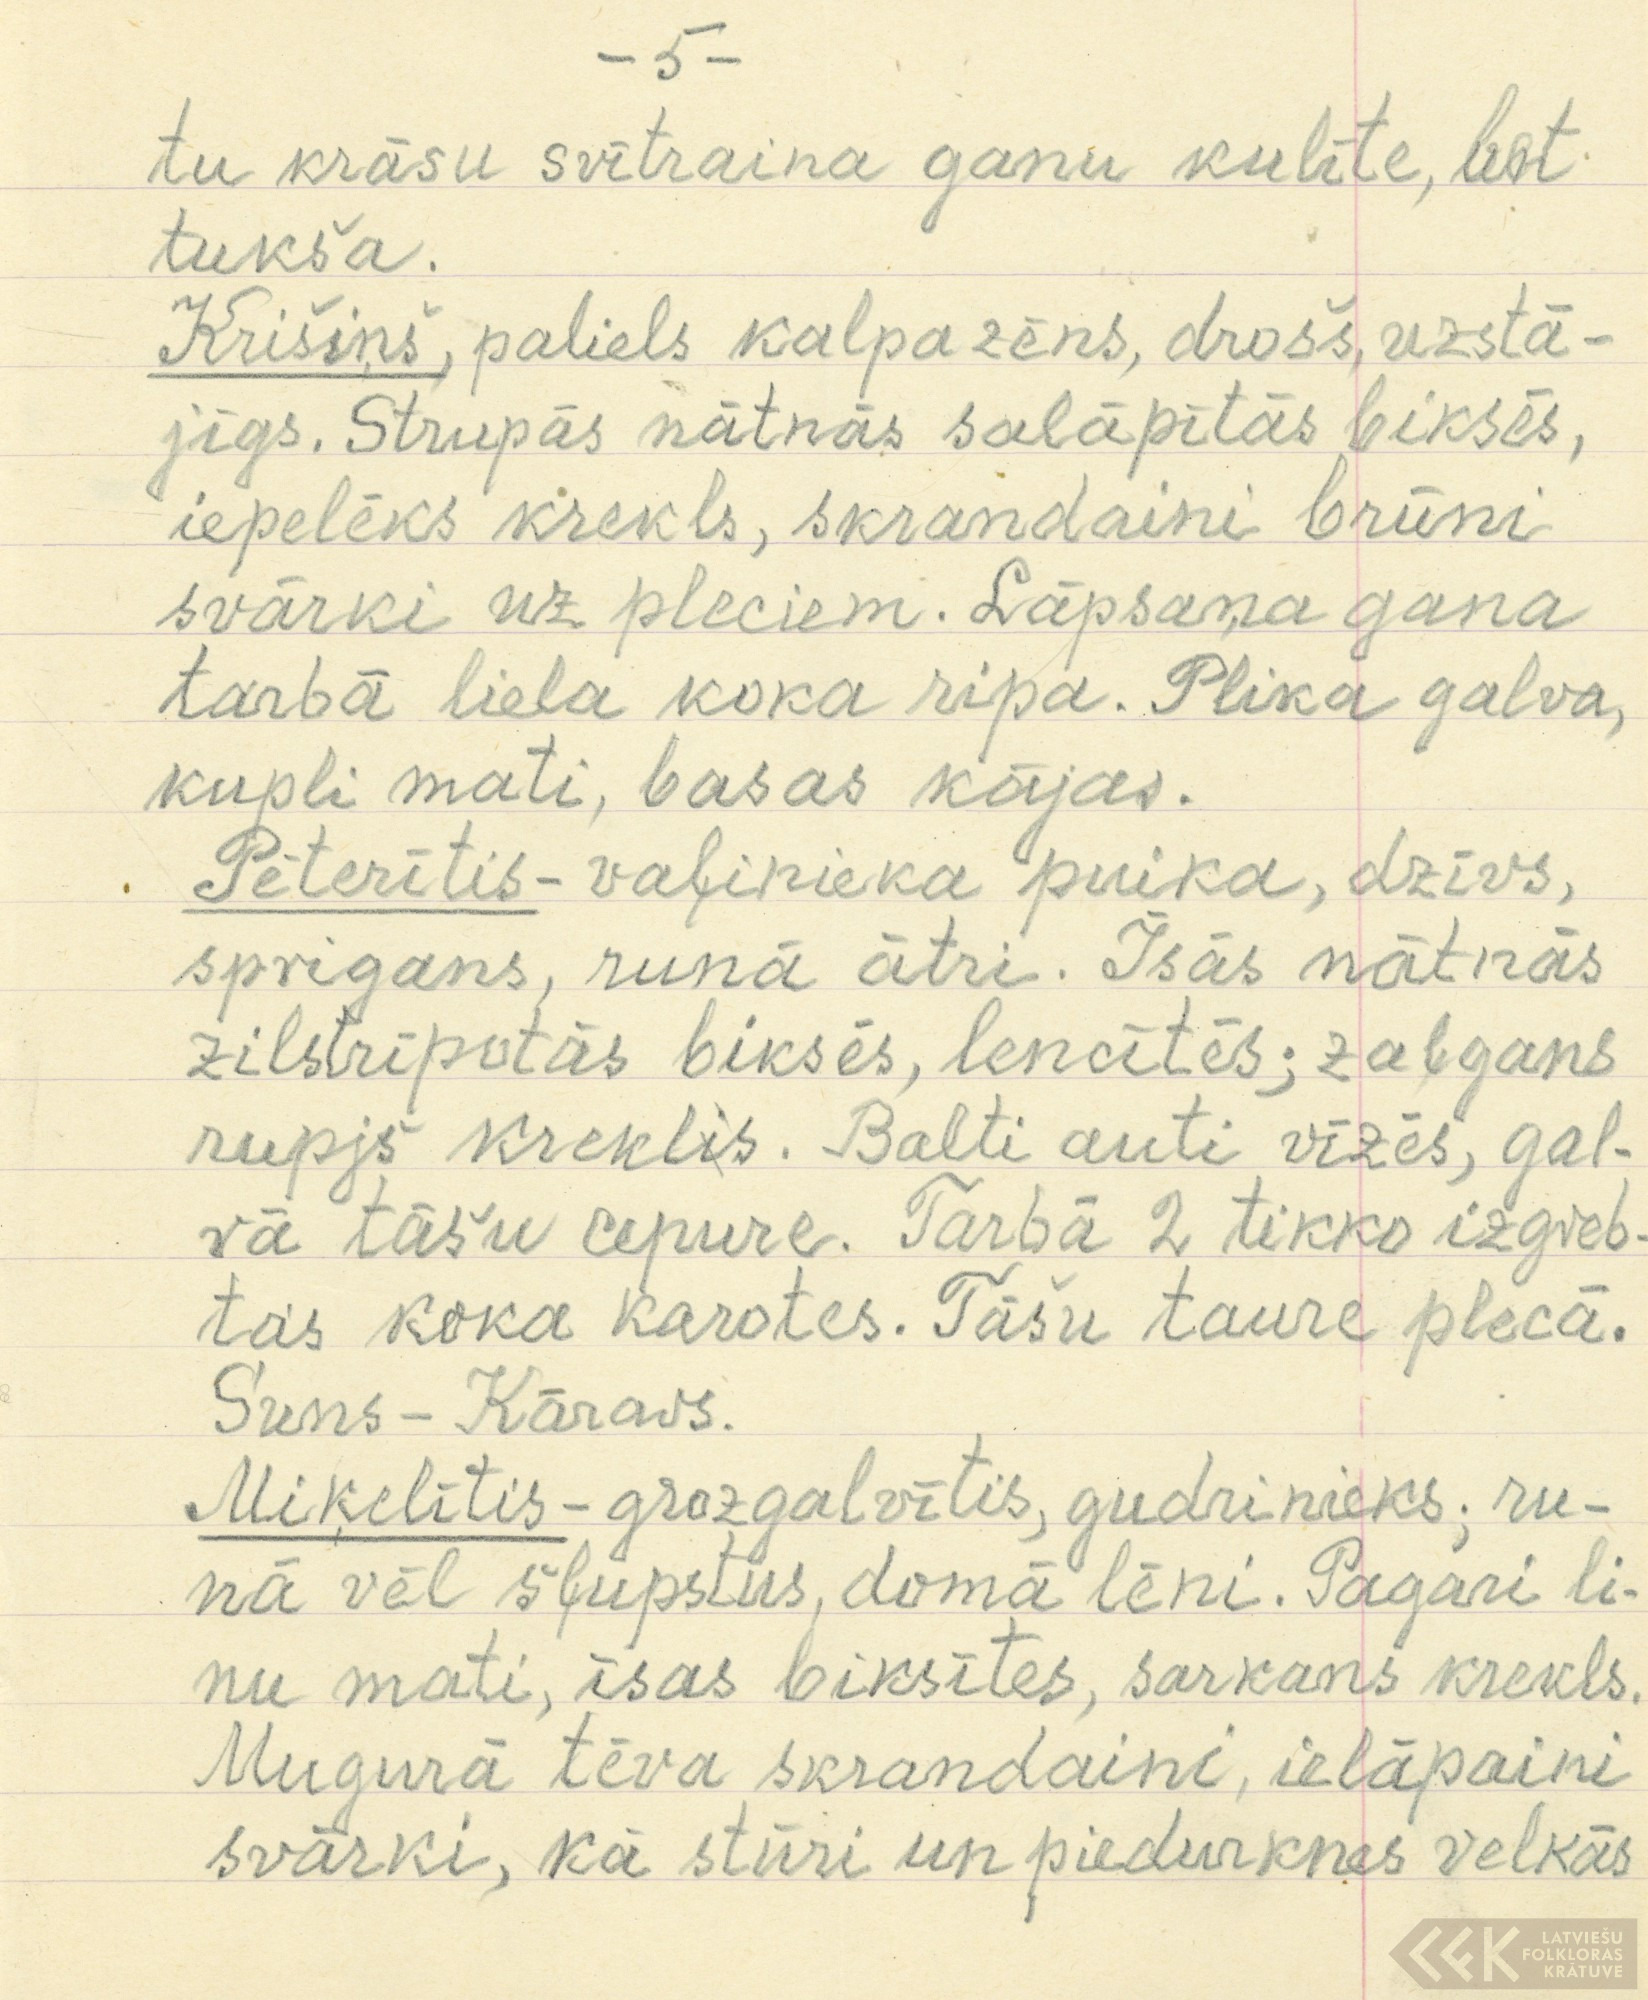 - 5 -
tu krāsu svītraina ganu kulīte, bet
tukša.
Krišiņš, paliels kalpa zēns, drošs, uzstā-
jīgs. Strupās nātnās salāpītās biksēs,
iepelēks krekls, skrandaini brūni
svārki uz pleciem. Lāpsaņa gana
tarbā liela koka ripa. Plika galva,
kupli mati, basas kājas.
Pēterītis - vaļinieka puika, dzīvs,
sprigans, runā ātri. Īsās nātnās
zilstrīpotās biksēs, lencītēs; zaļgans
rupjš kreklis. Balti auti vīzēs, gal-
vā tāšu cepure. Tarbā 2 tikko izgreb-
tas koka karotes. Tāšu taure plecā.
Suns - Kāravs.
Miķelītis - grozgalvītis, gudrinieks; ru-
nā vēl šļupstus, domā lēni. Pagari li-
nu mati, īsas biksītes, sarkans krekls.
Mugurā tēva skrandaini, ielāpaini
svārki, kā stūri un piedurknes velkās
LATVIEŠU
FOLKLORAS
KRĀTUVE